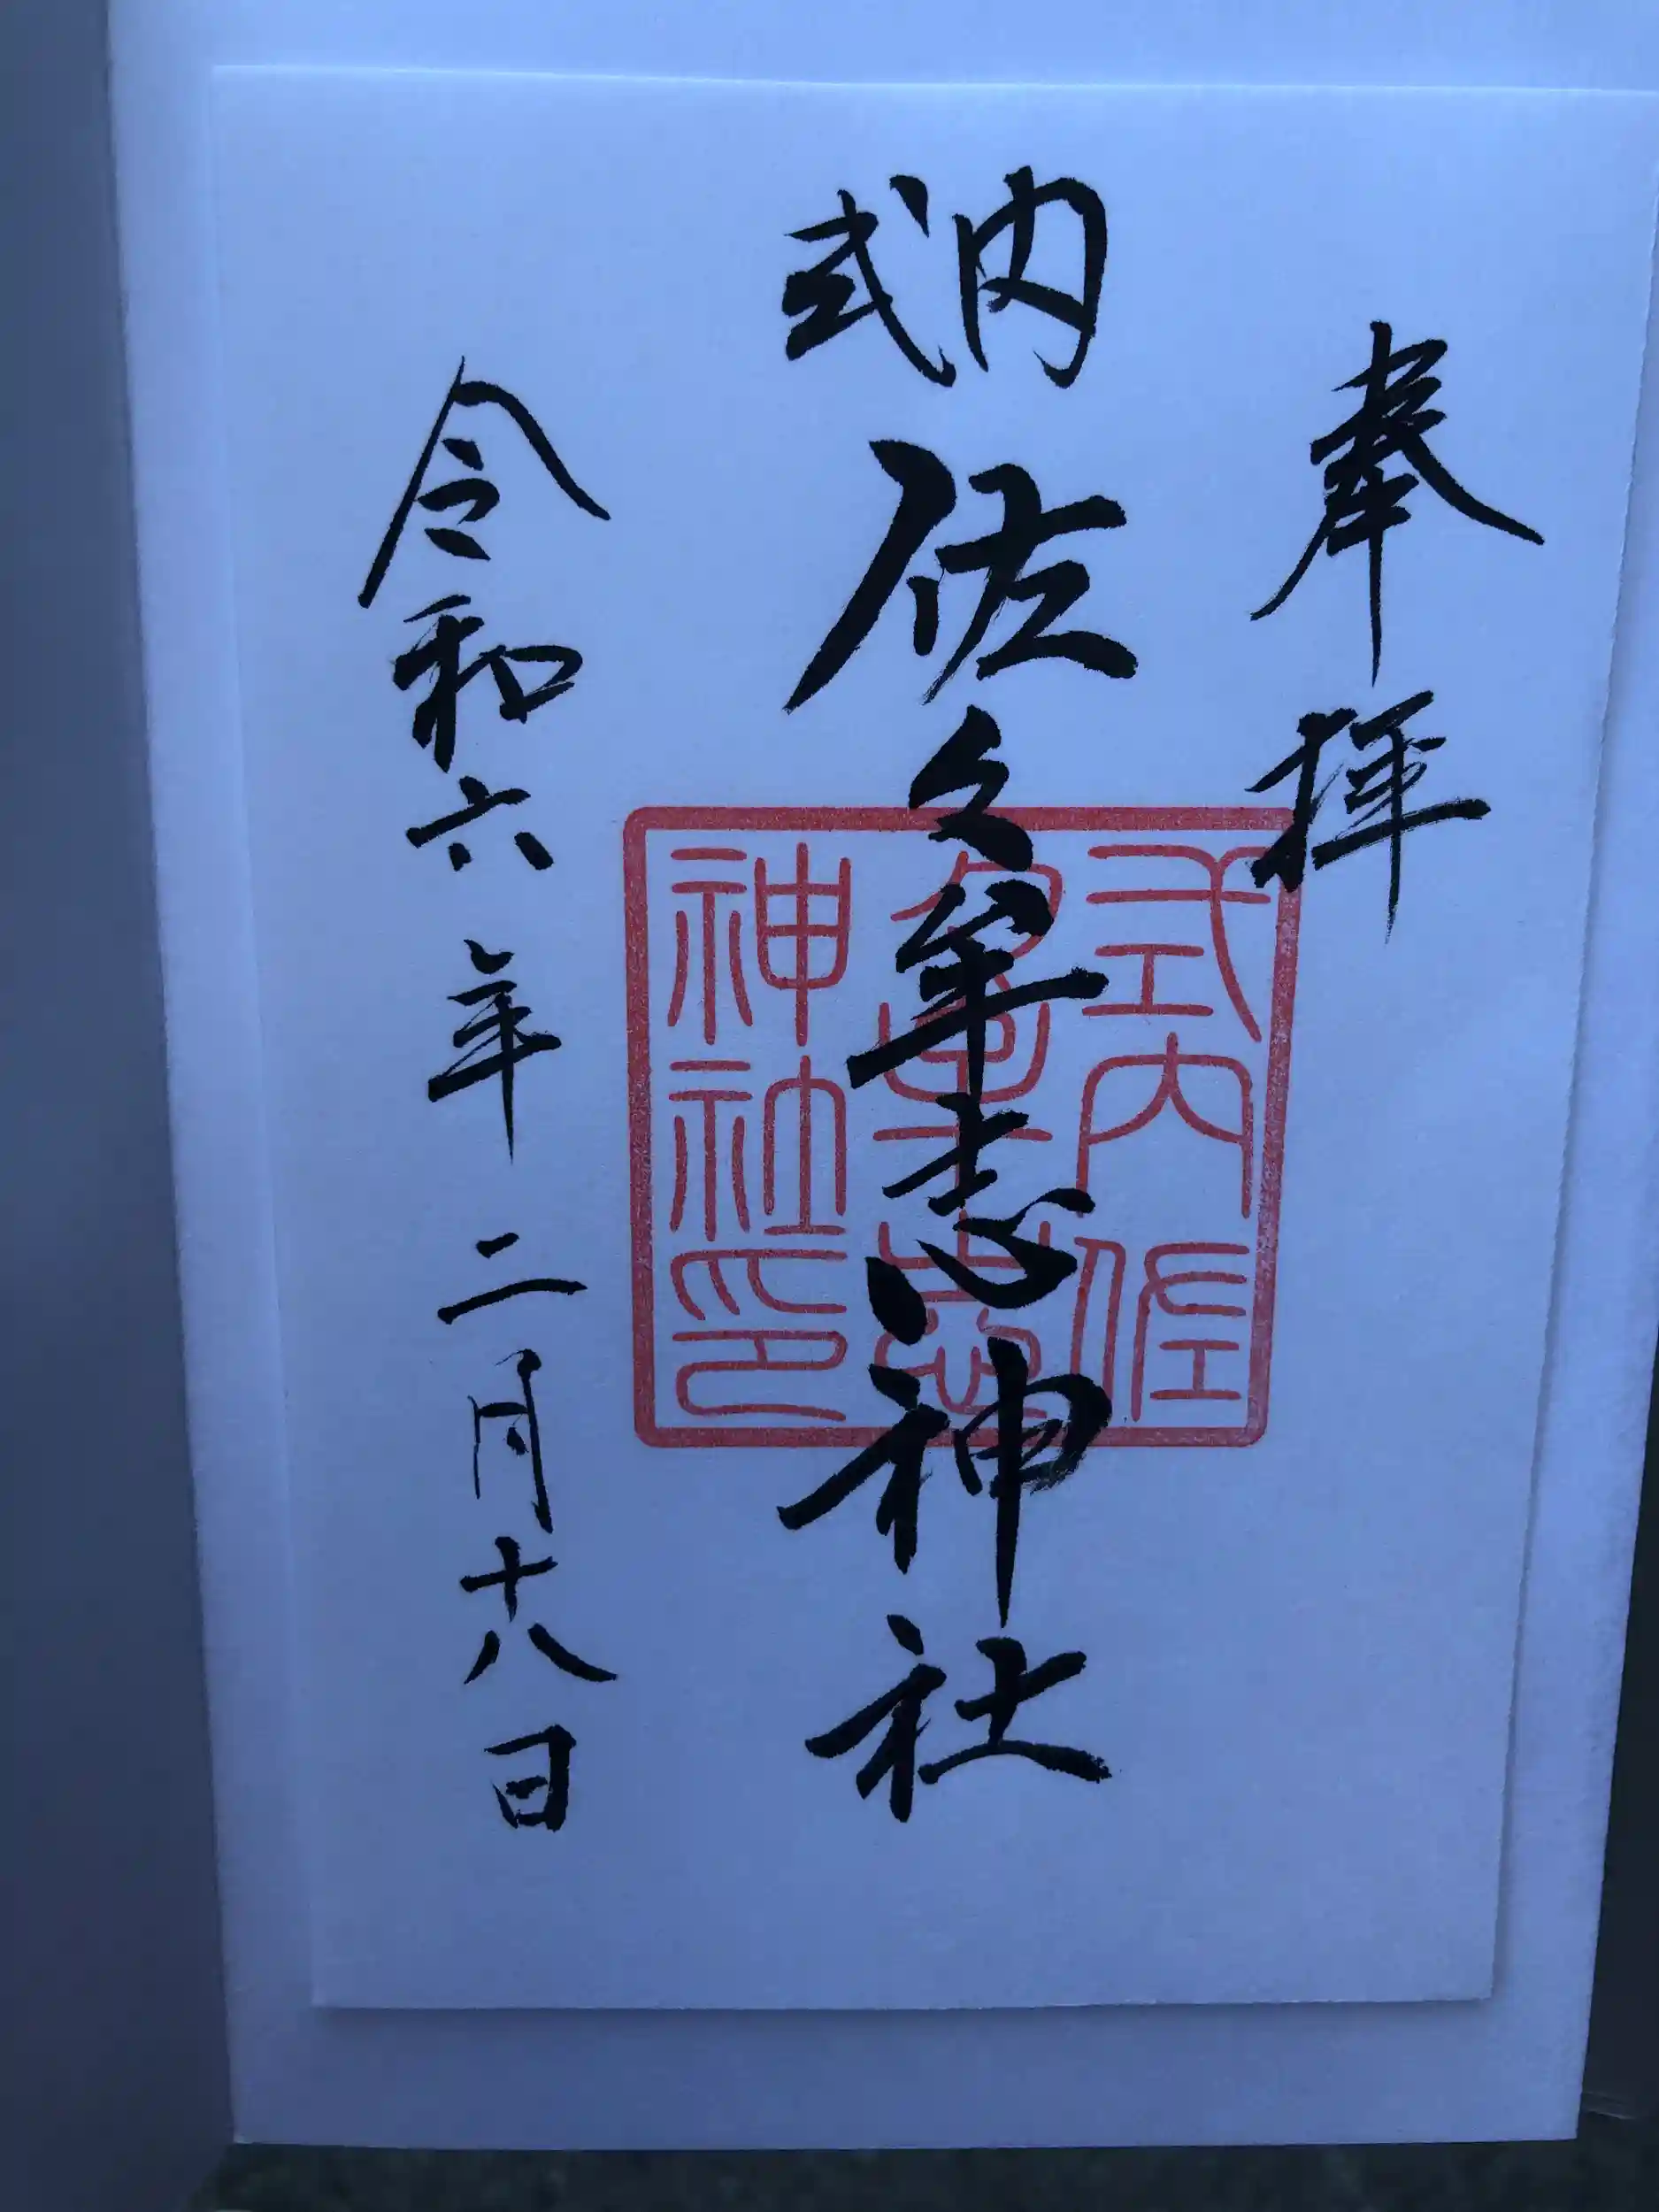 奉拝
式内
佐久牟志神社
令和六年二月十八日
式内佐
久牟志
神社印